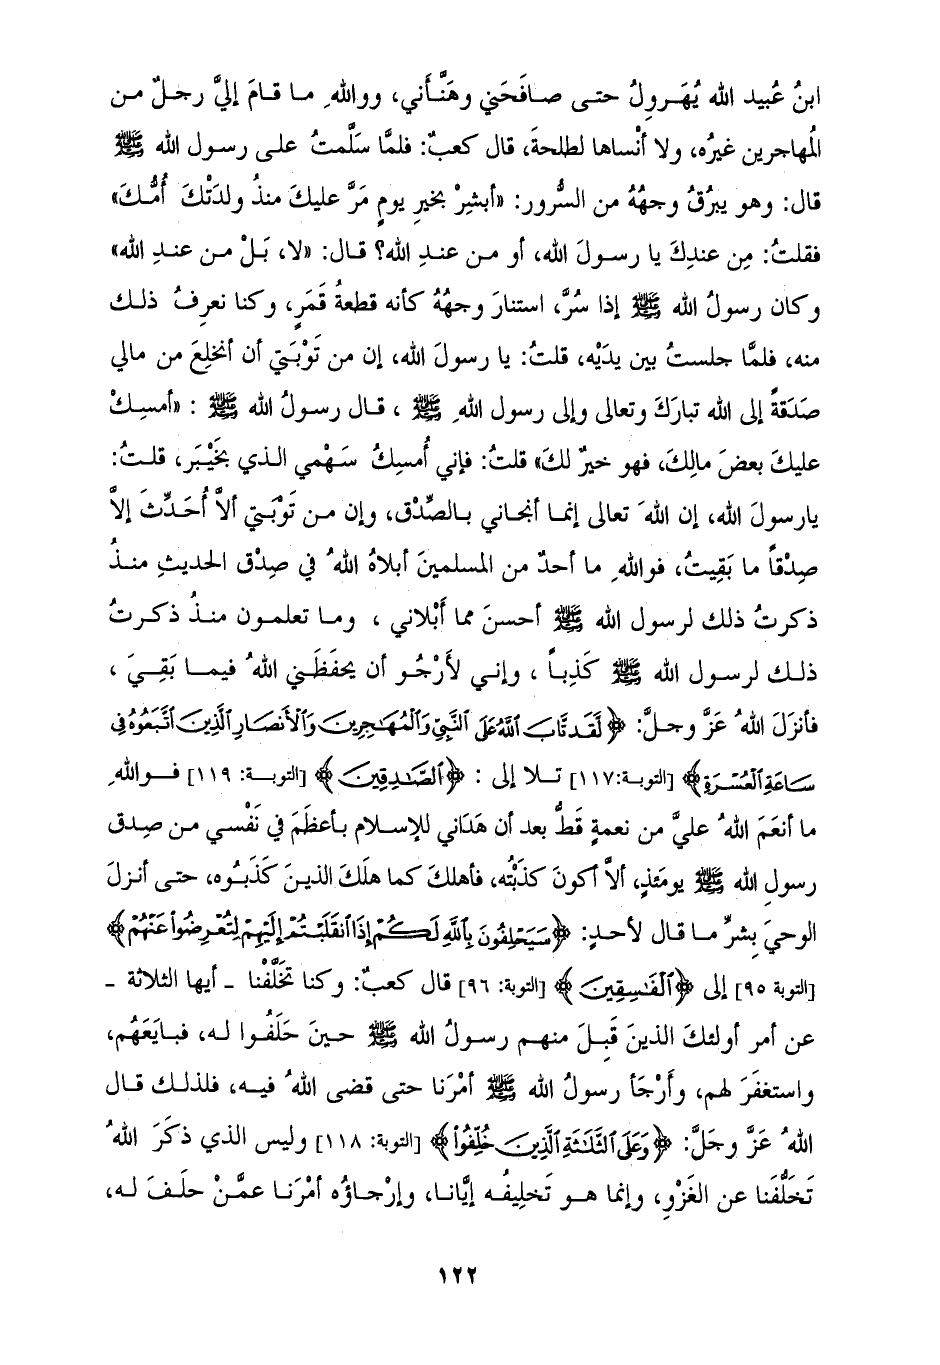 ابنُ عُبيد الله يُهَرولُ حتى صافَحَني وهَنَّأني، وواللهِ ما قامَ إليَّ رجلٌ من
المُهاجرين غيرُه، ولا أنْساها لطلحةَ، قال كعبٌ: فلمَّا سَلَّمتُ على رسول الله ﷺ
قال: وهو يبرُقُ وجهُهُ من السُّرور: «أبشِرْ بخيرِ يومٍ مَرَّ عليكَ منذُ ولدَتْكَ أُمُّكَ»
فقلتُ: مِن عندِكَ يا رسولَ الله، أو من عندِ الله؟ قال: «لا، بَلْ من عندِ الله»
وكان رسولُ الله ﷺ إذا سُرَّ، استنارَ وجهُهُ كأنه قطعةُ قَمَرٍ، وكنا نعرِفُ ذلك
منه، فلمَّا جلستُ بين يدَيْه، قلتُ: يا رسولَ الله، إن من تَوْبَتي أن أنخلِعَ من مالي
صَدَقةً إلى الله تبارَكَ وتعالى وإلى رسول اللهِ ﷺ ، قال رسولُ الله ﷺ : «أمسِكْ
عليكَ بعضَ مالِكَ، فهو خيرٌ لكَ» قلتُ: فإني أُمسِكُ سَهْمي الذي بخَيْبَر، قلتُ:
يارسولَ الله، إن اللهَ تعالى إنما أنجاني بالصِّدْق، وإن من تَوْبَتي ألاَّ أُحَدِّثَ إلاَّ
صِدْقاً ما بَقِيتُ، فواللهِ ما أحدٌ من المسلمينَ أبلاهُ اللهُ في صِدْق الحديثِ منذُ
ذكرتُ ذلك لرسول الله ﷺ أحسنَ مما أَبْلاني ، وما تعلمون منذُ ذكرتُ
ذلك لرسول الله ﷺ كَذِباً ، وإني لأَرْجُو أن يحفَظَني اللهُ فيما بَقِيَ ،
فأنزَلَ اللهُ عَزَّ وجلَّ: ﴿لَقَد تَّابَ اللَّهُ عَلَى النَّبِيِّ وَالْمُهَاجِرِينَ وَالْأَنصَارِ الَّذِينَ اتَّبَعُوهُ فِي
سَاعَةِ الْعُسْرَةِ﴾ [التوبة:١١٧] تلا إلى : ﴿الصَّادِقِينَ﴾ [التوبة: ١١٩] فواللهِ
ما أنعَمَ اللهُ عليَّ من نعمةٍ قَطُّ بعد أن هَدَاني للإسلام بأعظَمَ في نَفْسي من صِدق
رسولِ الله ﷺ يومَئذٍ، ألاَّ أكونَ كذَبْتُه، فأهلكَ كما هلَكَ الذينَ كَذَبُوه، حتى أنزلَ
الوحيَ بِشرِّ ما قال لأحدٍ: ﴿سَيَحْلِفُونَ بِاللَّهِ لَكُمْ إِذَا انقَلَبْتُمْ إِلَيْهِمْ لِتُعْرِضُوا عَنْهُمْ﴾
[التوبة ٩٥] إلى ﴿الْفَاسِقِينَ﴾ [التوبة: ٩٦] قال كعبٌ: وكنا تخَلَّفْنا - أيها الثلاثة -
عن أمر أولئكَ الذينَ قَبِلَ منهم رسولُ الله ﷺ حينَ حَلَفُوا له، فبايَعَهُم،
واستغفَرَ لهم، وأرْجَأ رسولُ الله ﷺ أمْرَنا حتى قضى اللهُ فيه، فلذلك قال
اللهُ عَزَّ وجَلَّ: ﴿وَعَلَى الثَّلَاثَةِ الَّذِينَ خُلِّفُوا﴾ [التوبة: ١١٨] وليس الذي ذكَرَ اللهُ
تَخَلُّفَنا عن الغَزْوِ، وإنما هو تَخليفُه إيَّانا، وإرْجاؤُه أمْرَنا عمَّنْ حلَفَ له،
١٢٢